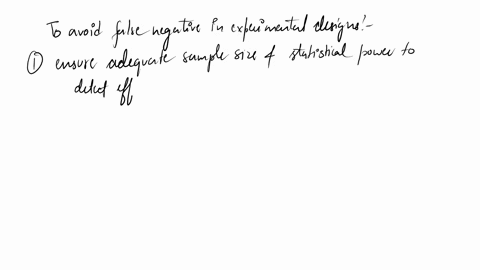 To avoid false negative in experimental designs!-
① ensure adequate sample size & statistical power to
detect eff